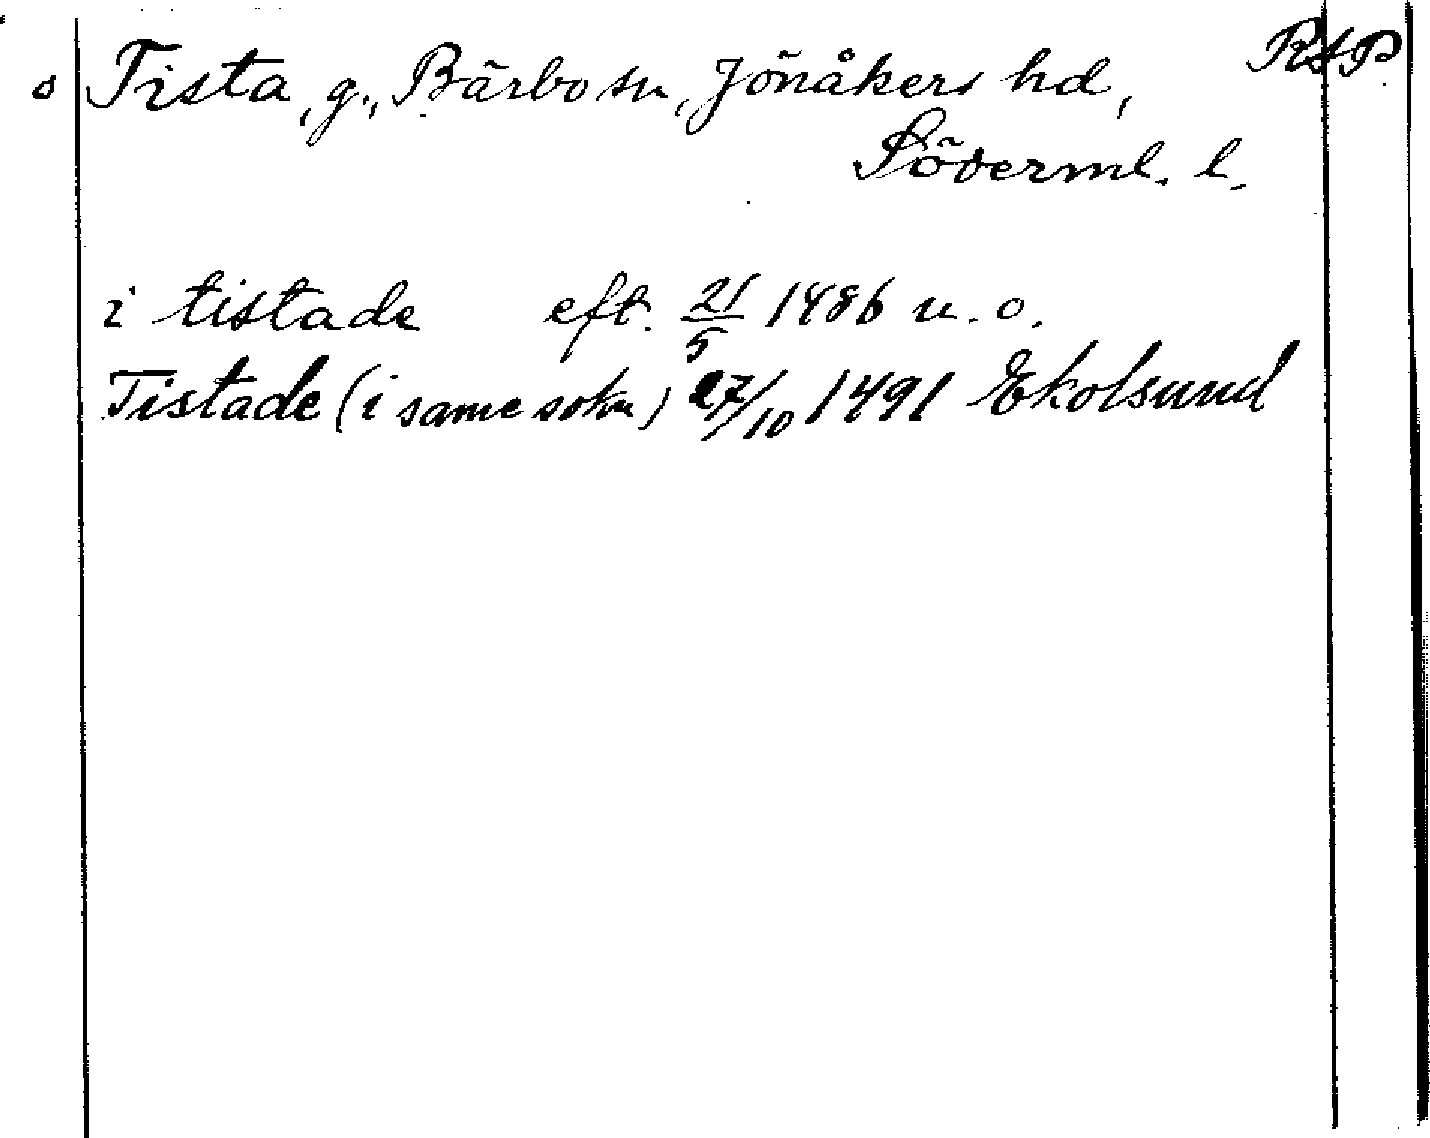 s Tista, g., Bärbo sn, Jönåkers hd, RAP
Söderml. l.
i tistade eft. 21/5 1486 u. o.
Tistade (i same sokn) 27/10 1491 Ekolsund